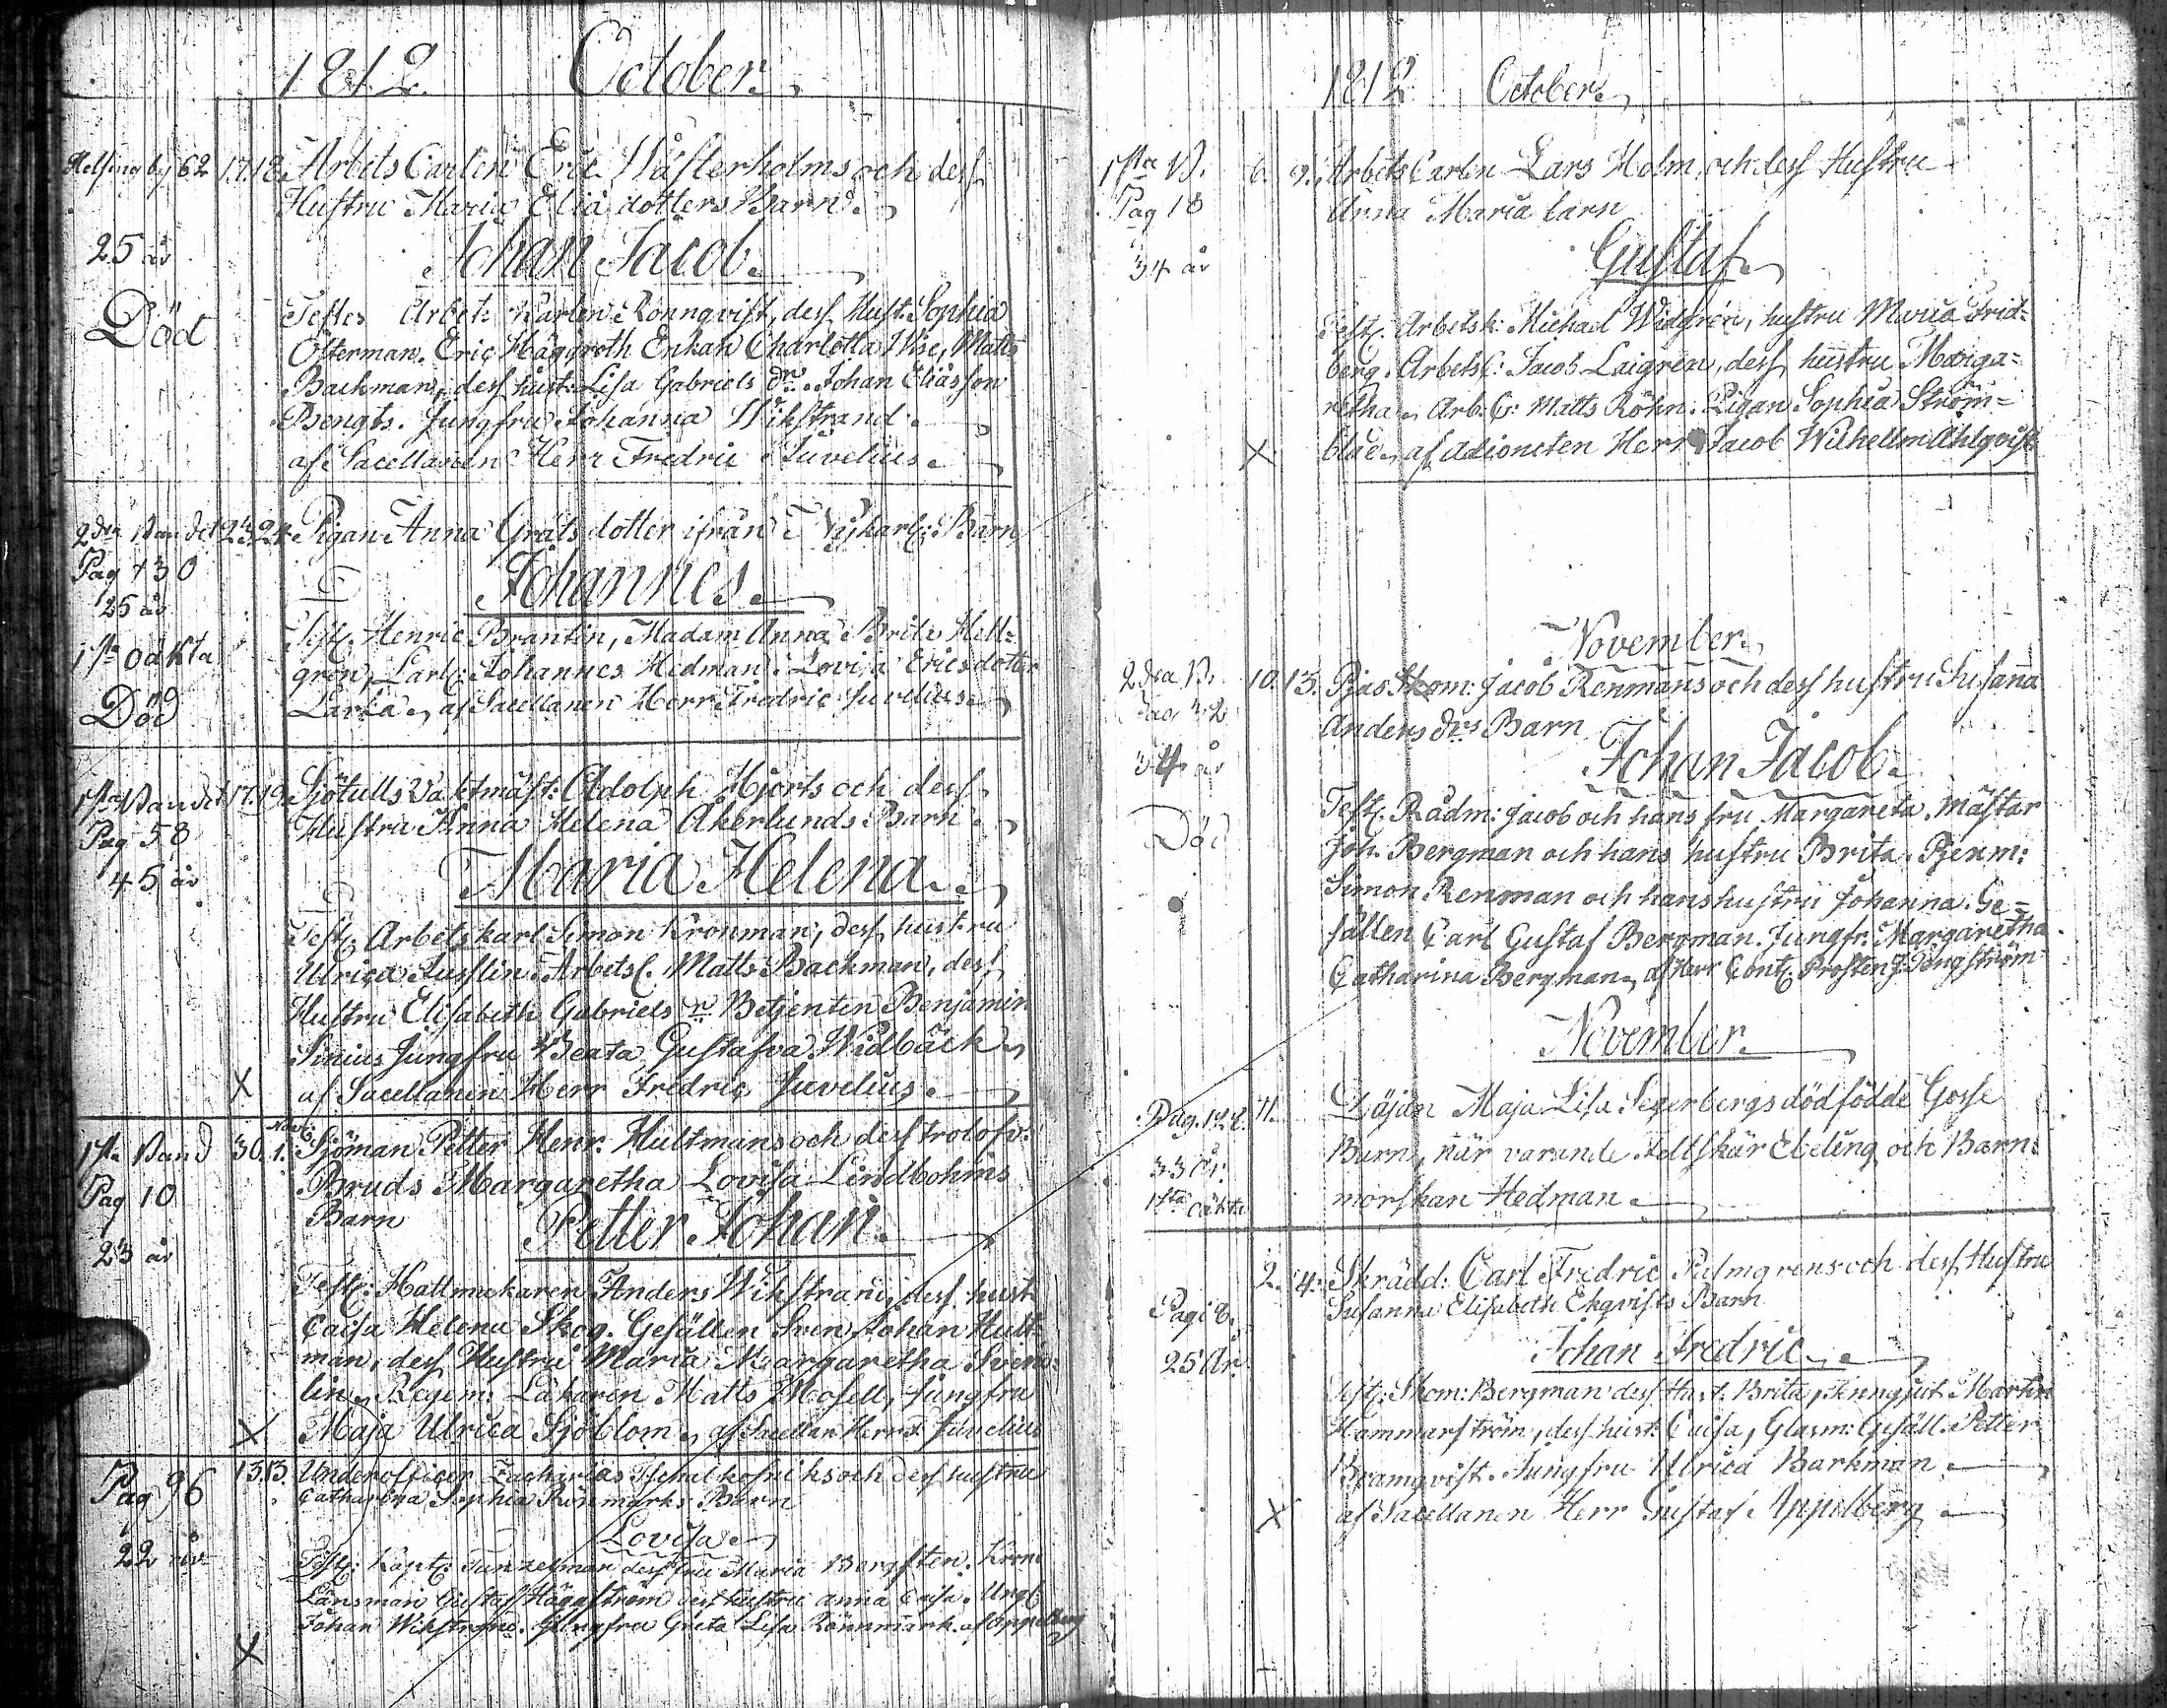 1812. October.
Helsingby 62 17. 18. Arbets Carlen Eric Wästerholms och dess
Hustru Maria Eliä dotters Barn.
25 år
Johan Jacob.
Död
Testes Arbets Karlen Rönnqvist, dess Hust: Sophia
Österman. Eric Häggroth Enkan Charlotta Wise, Matts
Backman, dess hust: Lisa Gabriels dr. Johan Eliasson
Bengts. Jungfru Johanna Wikstrand.
af Sacellanen Herr Fredric Juvelius.
2dra Bandet 23. 24. Pigan Anna Gräls dotter ifrån Nykarl: Barn
Pag 130
Johannes.
25 år
Test: Henric Brantin, Madam Anna Brita Hell-
1sta oäkta
gren, Carl: Johannes Hedman. Lovisa Ericsdotter
Död
af Sacellanen Herr Fredric Juvelius.
1sta Bandet 17. 19. Sjötulls Vaktmäst: Adolph Hjorts och dess
Hustru Anna Helena Åkerlunds Barn.
Pag 58
45 år
Maria Helena.
Test: Arbetskarl Simon Kronman, dess hustru
Ulrica Arbetsc. Matts Backman, dess
Hustru Elisabeth Gabriels dr Betjenten Benjamin
Sinius Jungfru Beata Gustafva Widbäck
X af Sacellanen Herr Fredric Juvelius.
Nov:
1sta Band 30. 1. Sjöman Petter Henr. Hultmans och dess trolofv:
Pag 10
Bruds Margaretha Lovisa Lindbohms
Barn
Petter Johan.
23 år
Test: Hattmakaren Anders Wikstrand, dess hust:
Caisa Helena Skog. Gesällen Sven Johan Hult-
man, dess Hustru Maria Margaretha Sven-
lin. Regem: Läkaren Matts Mosell, jungfru
X Maja Ulrica Sjöblom, af Sacellan Herr F Juvelius
Pag 96 13. 13. Underofficer Zacharias och dess hustru
Catharina Sophia Rönmarks Barn
Lovisa.
22 år
Test: Capt: Tunzelman dess fru Maria Bergsten. Kron
Länsman Gustaf Häggström dess hustru Anna Caisa.
Johan Wikstrand. Jungfru Greta Lisa Rönnmark. af Appelberg
X
1812 October.
1sta B. 6. 9. Arbets Carlen Lars Holm, och dess Hustru
Pag 18
Anna Maria barn
34 år
Gustaf.
Test: Arbetsk: Michael Widgrén, hustru Maria Frid-
berg. Arbetsc: Jacob Laigrén, dess hustru Marga-
retha, Arb.C: Matts Röhn. Pigan Sophia Ström-
X blad. af Adjoncten Herr Jacob Wilhelm Ahlqvist
November.
2dra B. 10. 13. Skom: Jacob Renmans och dess hustru Susanna
Pag 32
Anders drs Barn
34 år
Johan Jacob.
Test: Rådm: Jacob och hans fru Margareta. Mästar
Död
Joh. Bergman och hans hustru Brita.
Simon Renman och hans hustru Johanna. Ge-
sällen Carl Gustaf Bergman. Jungfr. Margaretha
Catharina Bergman, af Herr Cont: Prosten J. Tengström
November.
11. Maja Lisa Segerbergs dödfödde Gosse
Barn, när varande Fältskär Ebeling och Barn-
33 år.
1sta oäkta
morskan Hedman.
2. 4. Skrädd: Carl Fredric Palmgrens och dess Hustru
Susanna Elisabeth Ekqvists Barn
25 År.
Johan Fredric.
Test: Skom: Bergman dess Hust: Brita, Martin
Hammarström, dess hust: Caisa, Glasm: Gesäll. Petter
Bramqvist. Jungfru Ulrica Barkman.
X af Sacellanen Herr Gustaf Appelberg